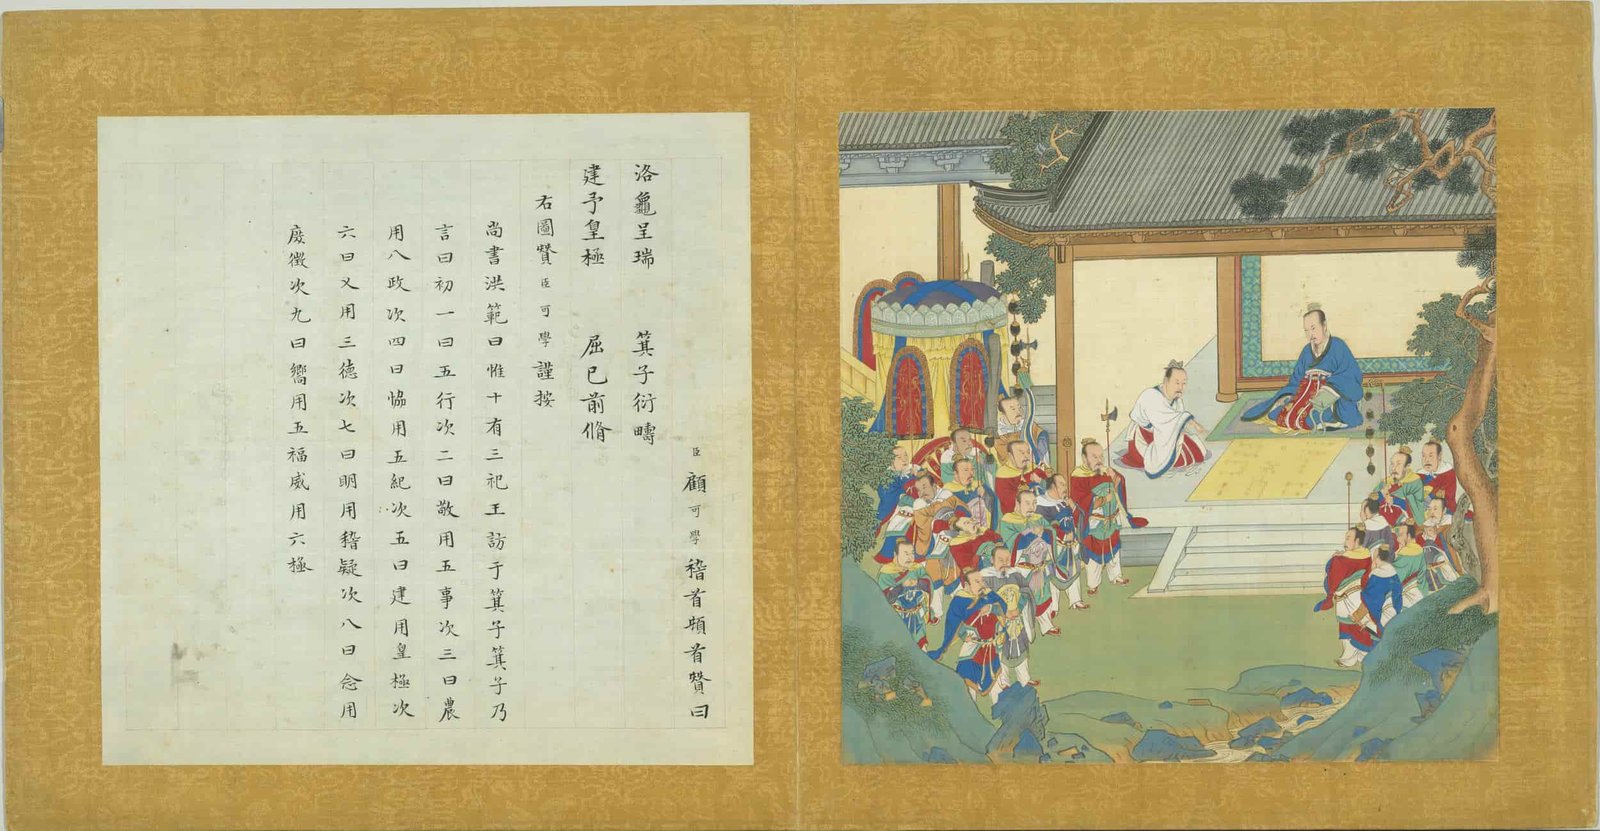 臣顧可學稽首頓首贊曰
洛龜呈瑞　箕子衍疇
建予皇極　屈已前脩
右圖贊臣可學謹按
尚書洪範曰惟十有三祀王訪于箕子箕子乃
言曰初一曰五行次二曰敬用五事次三曰農
用八政次四曰恊用五紀次五曰建用皇極次
六曰乂用三德次七曰明用稽疑次八曰念用
庶徵次九曰嚮用五福威用六極